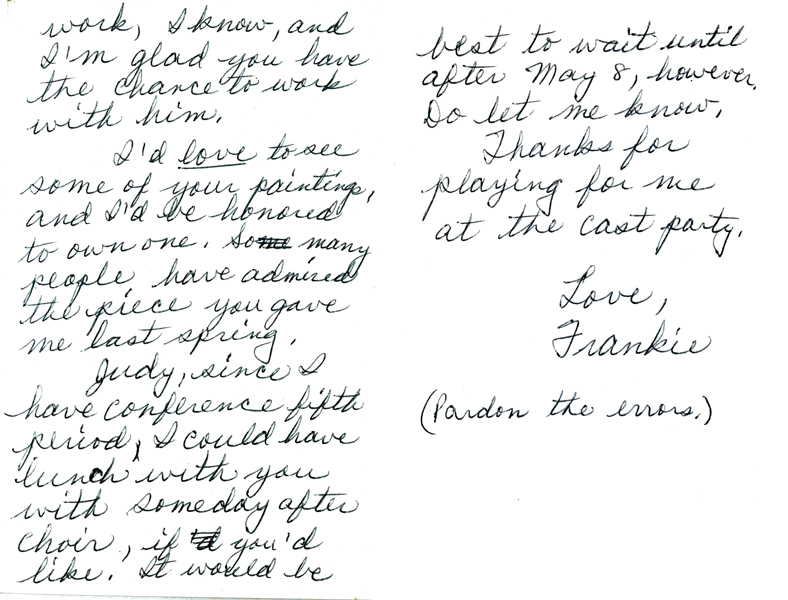 work, I know, and
I'm glad you have
the chance to work
with him.
I'd love to see
some of your paintings,
and I'd be honored
to own one. So many
people have admired
the piece you gave
me last spring.
Judy, since I
have conference fifth
period, I could have
lunch with you
with someday after
choir, if you'd
like. It would be
best to wait until
after May 8, however.
Do let me know.
Thanks for
playing for me
at the cast party.
Love,
Frankie
(Pardon the errors.)